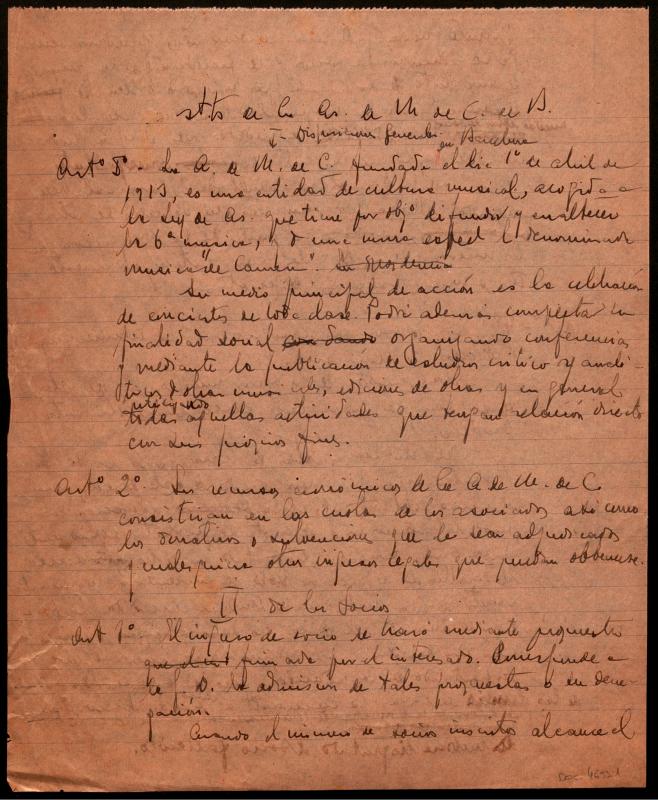 stts de la As. de M. de C. de B.
I - Disposiciones Generales
en Barcelona
Artº - La A. de M. de C. fundada el dia 1º de abril de
1913, es una entidad de cultura musical, acogida a
la Ley de As. que tiene por objº difundir y enaltecer
la música, y de una manera esped la denominada
musica "de Camara".
Su medio principal de acción es la celebración
de conciertos de toda clase. Podrá además completar su
finalidad social con dando organizando conferencias
y mediante la publicación de estudios critico y anali-
ticos de obras musicales, ediciones de obras y en general
practicando
todas aquellas actividades que tengan relación directa
con sus propios fines.
Artº 2º Los recursos económicos de la A de M. de C.
consistiran en las cuotas de los asociados asi como
los donativos o subvenciones que le sean adjudicados
y cualesquiera otros ingresos legales que puedan obtenerse.
II de los Socios
Art 1º El ingreso de socio se hará mediante propuesta
firmada por el interesado. Corresponde a
la J. D. la admision de tales propuestas o su dene-
gación.
Cuando el número de socios inscritos alcance el
DOC. 46521